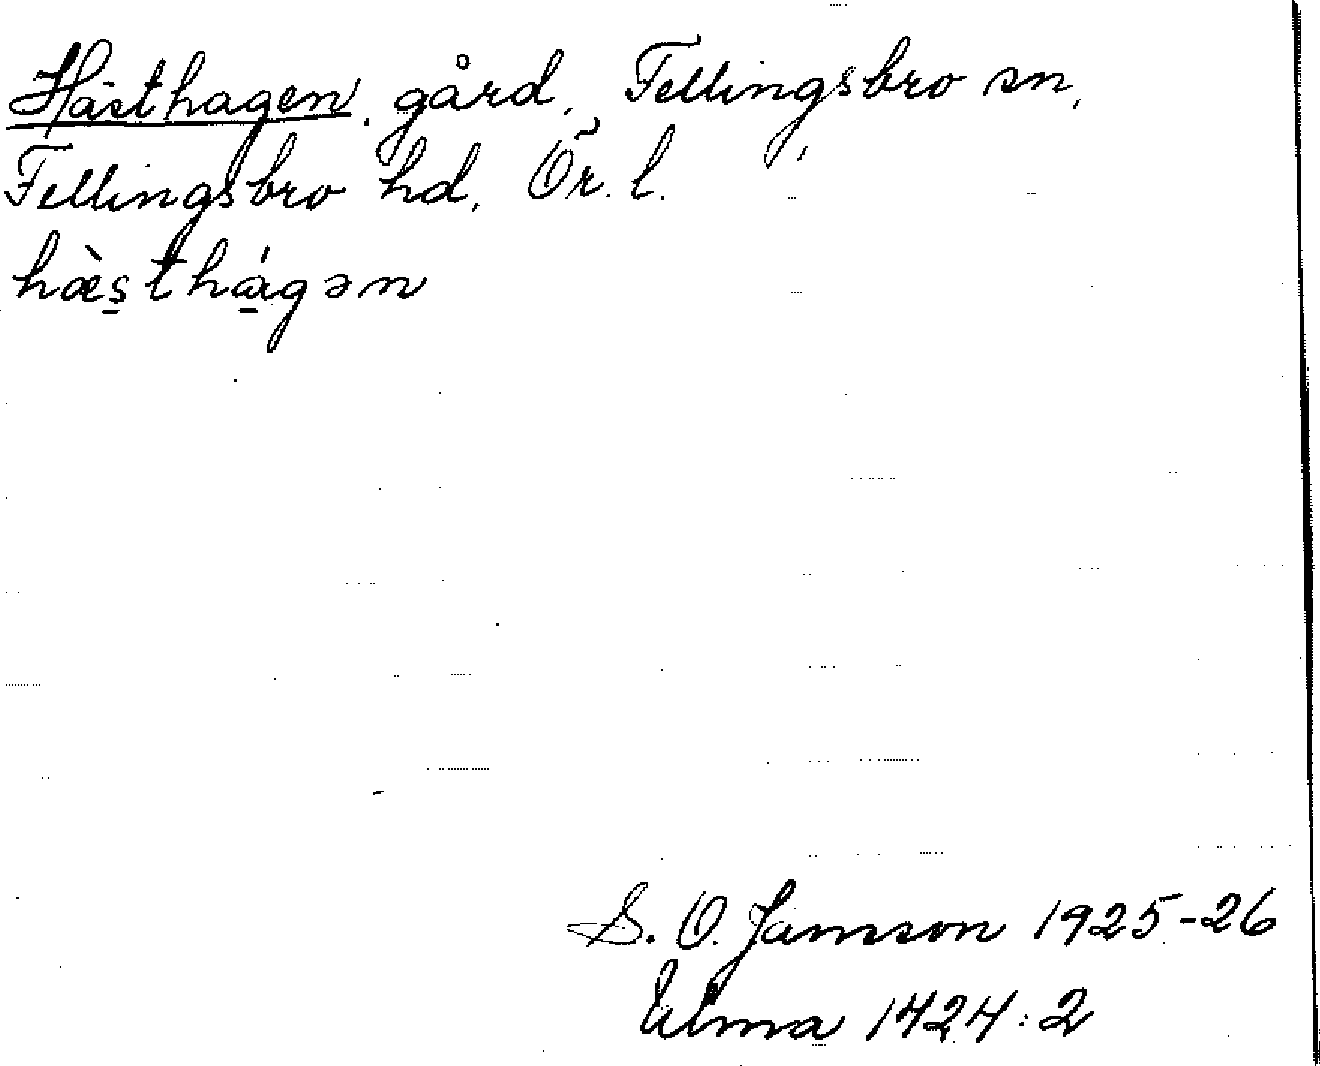 Hästhagen, gård, Fellingsbro sn,
Fellingsbro hd, Ör. l.
hæ̀sthágən
S. O. Jansson 1925-26
Ulma 1424:2